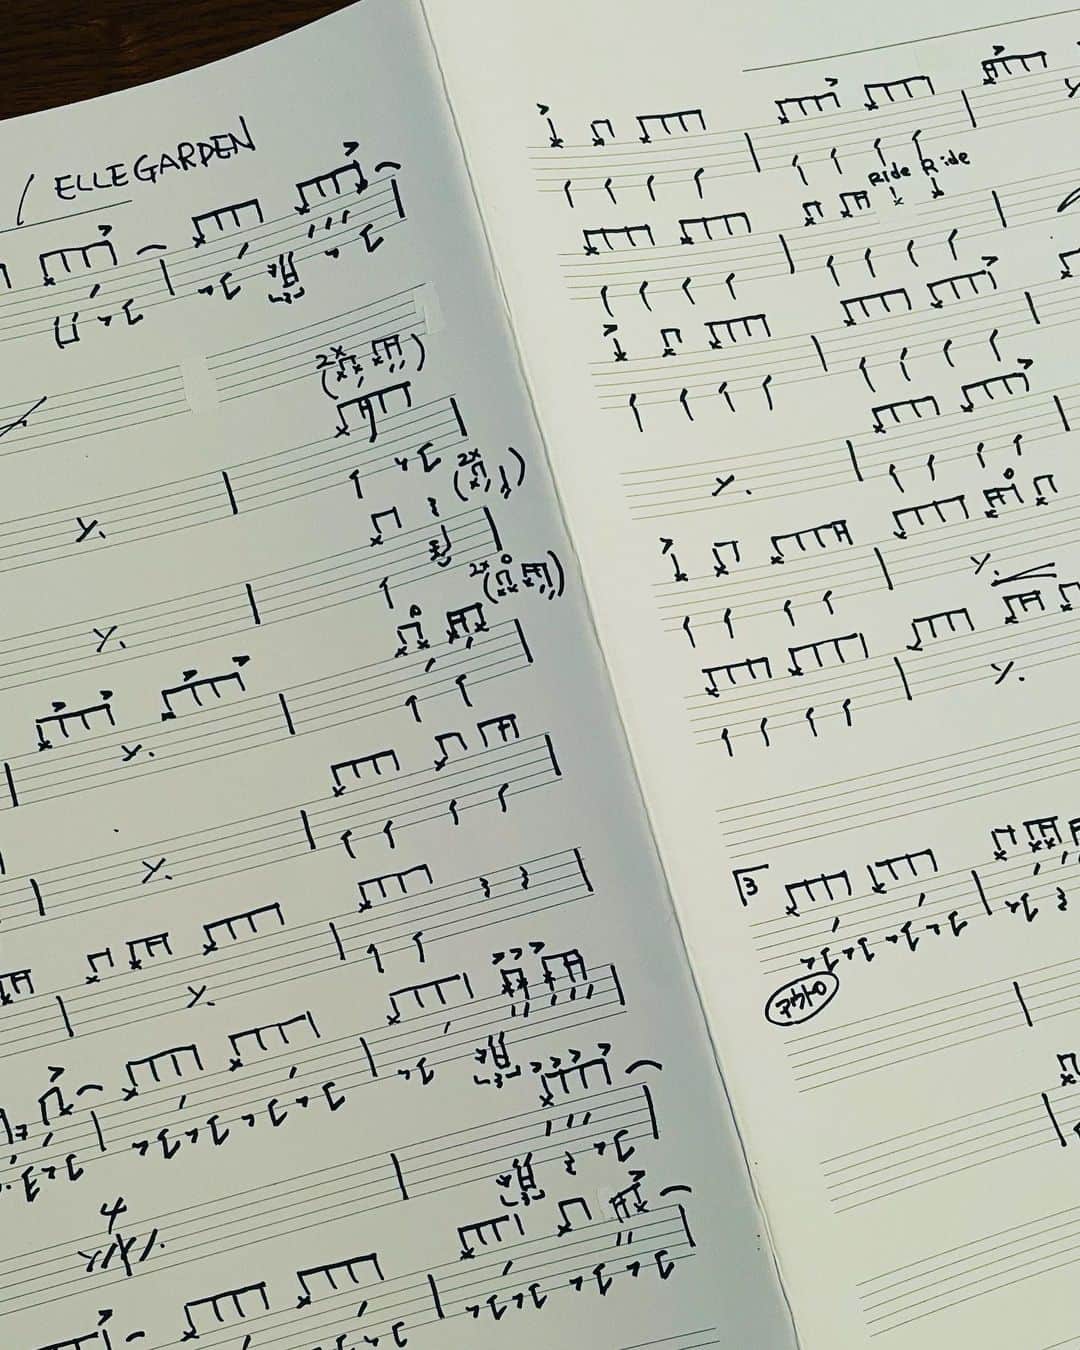 / ELLEGARDEN
3
2x
2x
2x
3
4
3
Ride Ride
3
アウトロ